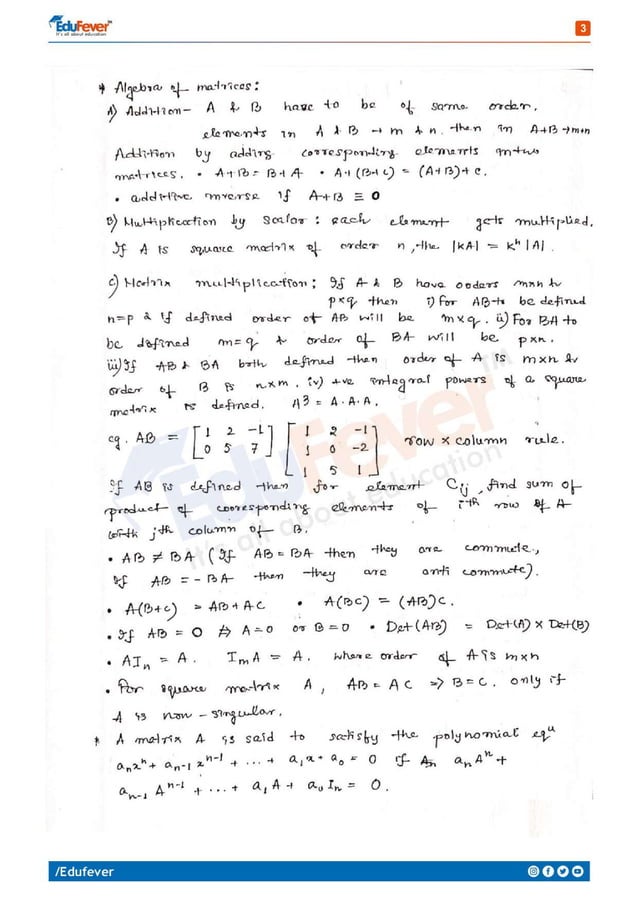 EduFever
It's all about education
3
* Algebra of matrices:
A) Addition - A & B have to be of same order.
elements in A & B → m & n. then in A+B → m+n
Addition by adding corresponding elements in two
matrices. • A+B = B+A • A+(B+C) = (A+B)+C.
• additive inverse if A+B ≡ 0
B) Multiplication by Scalar: each element gets multiplied.
If A is square matrix of order n, the |KA| = Kⁿ |A|.
C) Matrix multiplication: If A & B have orders m×n &
p×q then i) For AB to be defined
n=p & if defined order of AB will be m×q. ii) For BA to
be defined m=q & order of BA will be p×n.
iii) If AB & BA both defined then order of A is m×n &
order of B is n×m. iv) +ve integral powers of a square
matrix is defined. A³ = A·A·A.
eg. AB = [1 2 -1] [1 2 -1] row × column rule.
[0 5 7] [1 0 -2]
[1 5 1]
If AB is defined then for element Cij, find sum of
product of corresponding elements of iᵗʰ row of A
with jᵗʰ column of B.
• AB ≠ BA (If AB = BA then they are commute,
if AB = -BA then they are anti commute).
• A(B+C) = AB + AC • A(BC) = (AB)C.
• If AB = 0 ⇏ A=0 or B=0 • Det(AB) = Det(A) × Det(B)
• AIₙ = A. IₘA = A. where order of A is m×n
• For square matrix A, AB = AC ⇒ B=C. only if
A is non-singular.
* A matrix A is said to satisfy the polynomial equⁿ
aₙxⁿ + aₙ₋₁xⁿ⁻¹ + ... + a₁x + a₀ = 0 if aₙAⁿ +
aₙ₋₁Aⁿ⁻¹ + ... + a₁A + a₀Iₙ = 0.
/Edufever